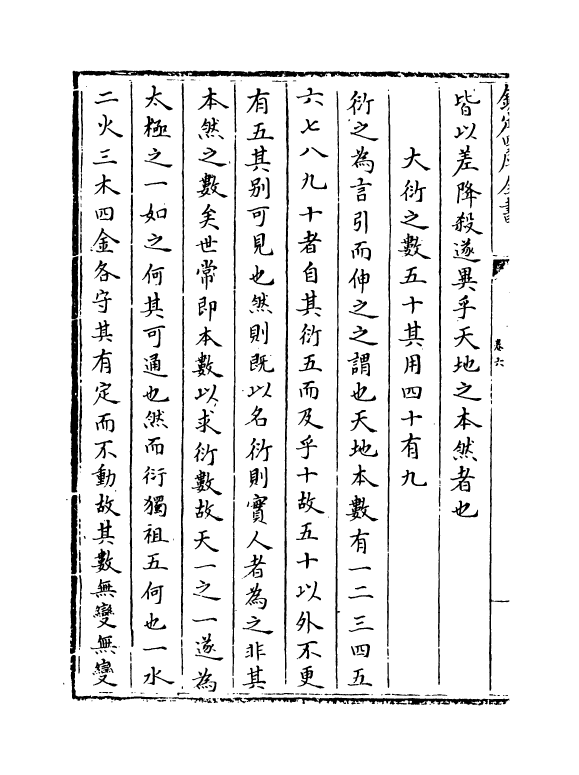 欽定四庫全書
卷六
皆以差降殺遂異乎天地之本然者也
大衍之數五十其用四十有九
衍之為言引而伸之之謂也天地本數有一二三四五
六七八九十者自其衍五而及乎十故五十以外不更
有五其别可見也然則既以名衍則實人者為之非其
本然之數矣世常即本數以求衍數故天一之一遂為
太極之一如之何其可通也然而衍獨祖五何也一水
二火三木四金各守其有定而不動故其數無變無變